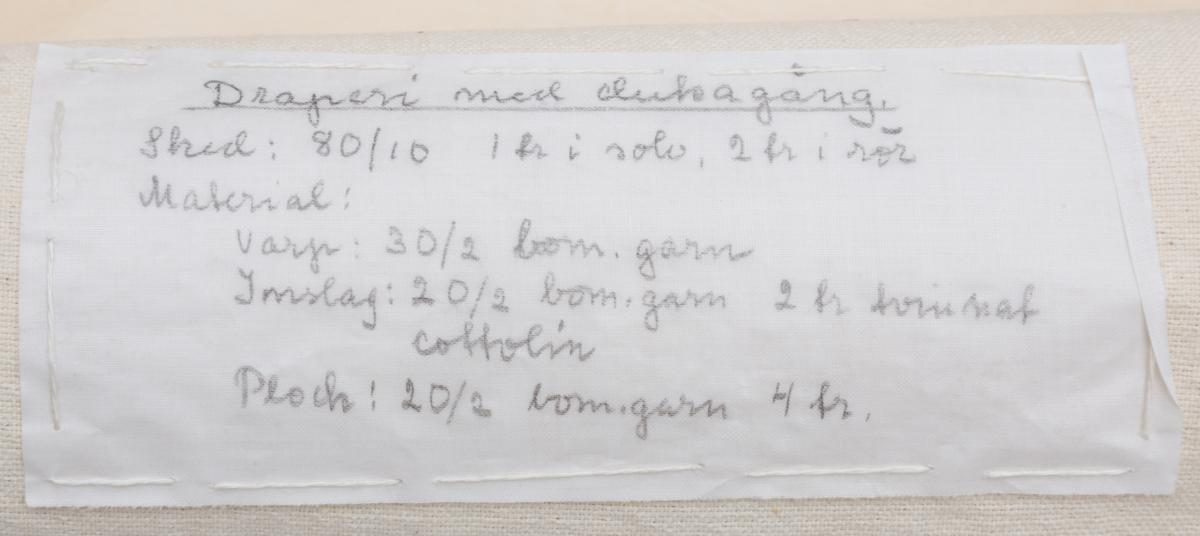 Draperi med dukagång.
Sked: 80/10 1 tr i solv, 2 tr i rör
Material:
Varp: 30/2 bom.garn
Inslag: 20/2 bom.garn 2 tr tvinnat
cottolin
Plock: 20/2 bom.garn 4 tr.